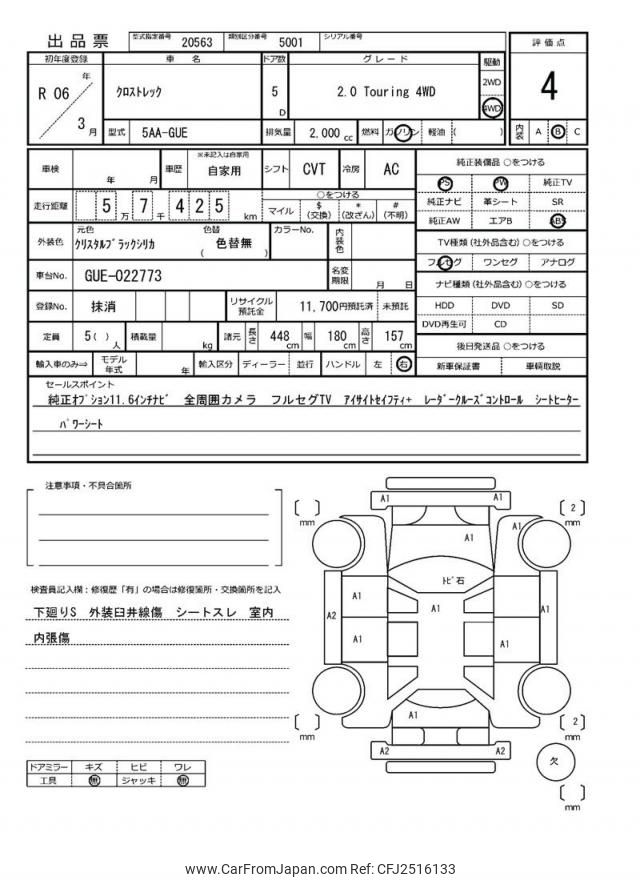 出品票 型式指定番号 20563 類別区分番号 5001 シリアル番号
初年度登録 車名 ドア数 グレード 駆動 評価点
R 06 年 3 月 クロストレック 5 D 2.0 Touring 4WD 2WD 4WD 4
型式 5AA-GUE 排気量 2,000 cc 燃料 ガソリン 軽油 ( ) 内装 A B C
車検 年 月 車歴 ※未記入は自家用 自家用 シフト CVT 冷房 AC
純正装備品 ○をつける
PS PW 純正TV
純正ナビ 革シート SR
純正AW エアB ABS
走行距離 5 万 7 千 4 2 5 km
○をつける
マイル $ (交換) * (改ざん) # (不明)
TV種類 (社外品含む) ○をつける
フルセグ ワンセグ アナログ
外装色 元色 クリスタルブラックシリカ 色替 ( 色替無 ) カラーNo. 内装色
ナビ種類 (社外品含む) ○をつける
HDD DVD SD
DVD再生可 CD
車台No. GUE-022773 名変期限 月 日
登録No. 抹消 リサイクル預託金 11,700円預託済 未預託
定員 5 ( ) 人 積載量 kg 諸元 長さ 448 cm 幅 180 cm 高さ 157 cm
後日発送品 ○をつける
新車保証書 車輌取説
輸入車のみ⇒ モデル年式 年 輸入区分 ディーラー 並行 ハンドル 左 右
セールスポイント
純正オプション11.6インチナビ 全周囲カメラ フルセグTV アイサイトセイフティ+ レーダークルーズコントロール シートヒーター
パワーシート
注意事項・不具合箇所
検査員記入欄：修復歴「有」の場合は修復箇所・交換箇所を記入
下廻りS 外装臼井線傷 シートスレ 室内
内張傷
ドアミラー キズ ヒビ ワレ
工具 無 ジャッキ 無
[ ] mm
A1 A1
[ 2 ] mm
A1 A1
トビ石
A1 A1
A2 A1
A1 A1
A1
[ ] mm
[ 2 ] mm
A2 A2
欠
[ ] mm
www.CarFromJapan.com Ref: CFJ2516133